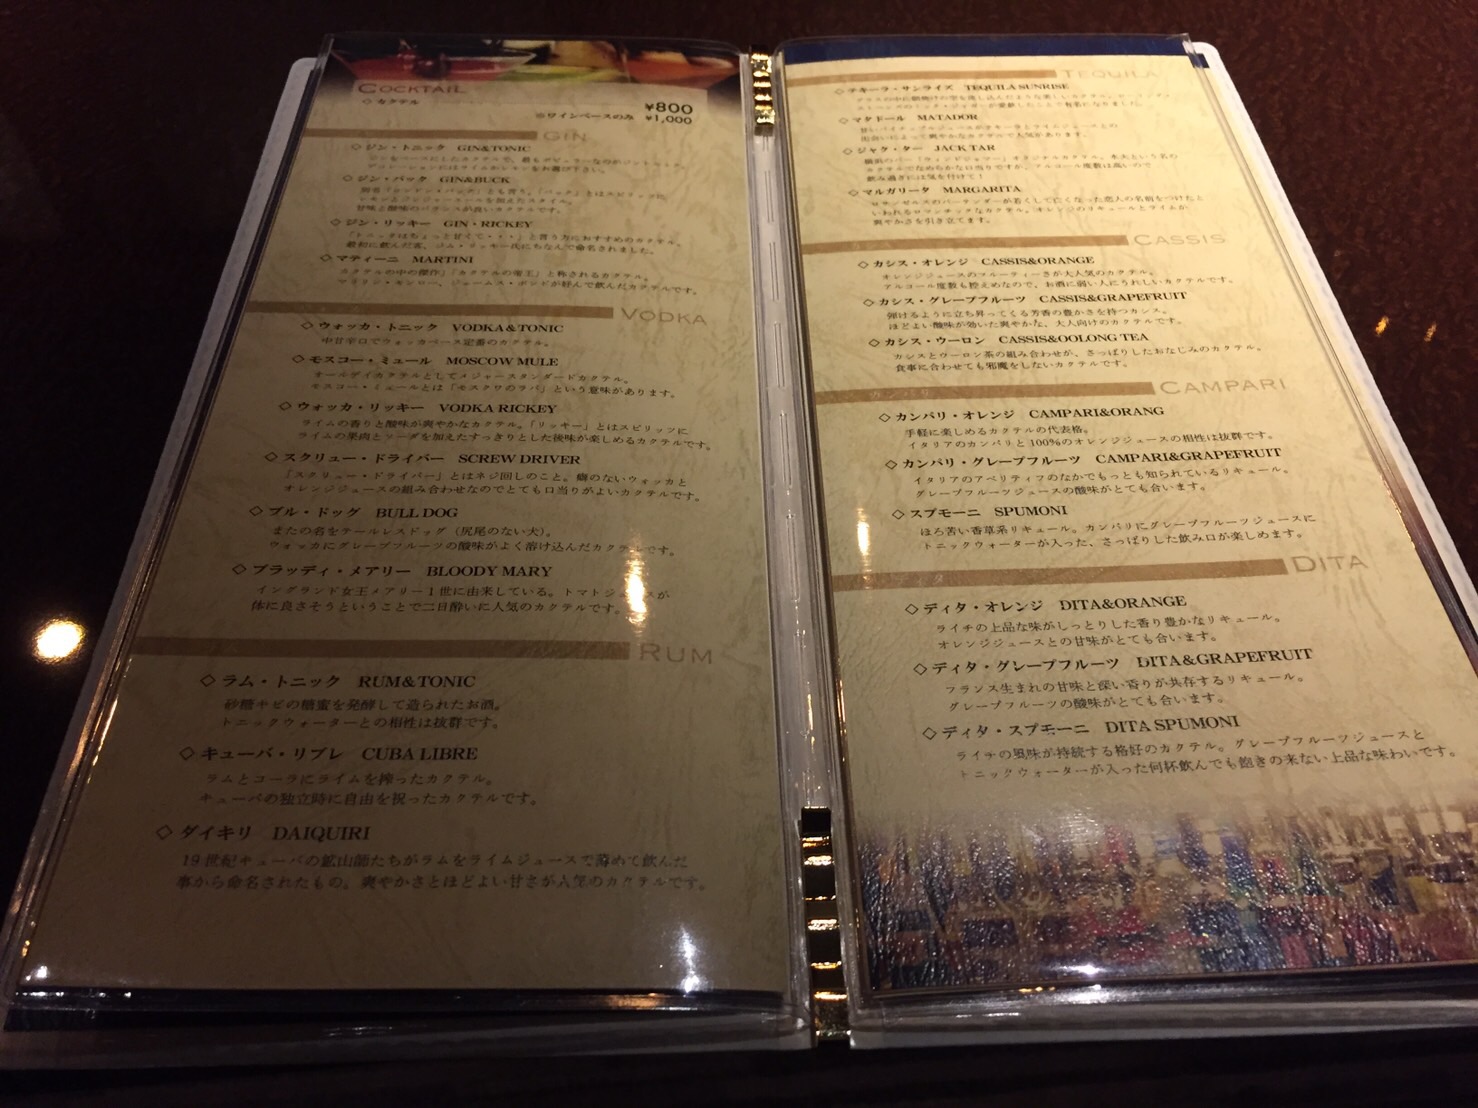 COCKTAIL
◇カクテル ¥800
※ワインベースのみ ¥1,000
GIN
◇ジン・トニック GIN&TONIC
ジンをベースにしたカクテルで、最もポピュラーなのがジントニック。
◇ジン・バック GIN&BUCK
レモンとジンジャーエールを加えたスタイル。
甘味と酸味のバランスが良いカクテルです。
◇ジン・リッキー GIN・RICKEY
「トニックはちょっと甘くて・・・」と言う方におすすめのカクテル。
最初に飲んだ客、ジム・リッキー氏にちなんで命名されました。
◇マティーニ MARTINI
カクテルの中の傑作「カクテルの帝王」と称されるカクテル。
マリリン・モンロー、ジェームス・ボンドが好んで飲んだカクテルです。
VODKA
◇ウォッカ・トニック VODKA&TONIC
中甘辛口でウォッカベース定番のカクテル。
◇モスコー・ミュール MOSCOW MULE
オールデイカクテルとしてメジャースタンダードカクテル。
モスコー・ミュールとは「モスクワのラバ」という意味があります。
◇ウォッカ・リッキー VODKA RICKEY
ライムの香りと酸味が爽やかなカクテル。「リッキー」とはスピリッツに
ライムの果肉とソーダを加えたすっきりとした後味が楽しめるカクテルです。
◇スクリュー・ドライバー SCREW DRIVER
「スクリュー・ドライバー」とはネジ回しのこと。癖のないウォッカと
オレンジジュースの組み合わせなのでとても口当りがよいカクテルです。
◇ブル・ドッグ BULL DOG
またの名をテールレスドッグ（尻尾のない犬）。
ウォッカにグレープフルーツの酸味がよく溶け込んだカクテルです。
◇ブラッディ・メアリー BLOODY MARY
イングランド女王メアリー1世に由来している。トマトジュースが
体に良さそうということで二日酔いに人気のカクテルです。
RUM
◇ラム・トニック RUM&TONIC
砂糖キビの糖蜜を発酵して造られたお酒。
トニックウォーターとの相性は抜群です。
◇キューバ・リブレ CUBA LIBRE
ラムとコーラにライムを搾ったカクテル。
キューバの独立時に自由を祝ったカクテルです。
◇ダイキリ DAIQUIRI
19世紀キューバの鉱山師たちがラムをライムジュースで薄めて飲んだ
事から命名されたもの。爽やかさとほどよい甘さが人気のカクテルです。
TEQUILA
◇テキーラ・サンライズ TEQUILA SUNRISE
◇マタドール MATADOR
甘いパイナップルジュースがテキーラとライムジュースとの
出会いによって爽やかなカクテルで人気があります。
◇ジャック・ター JACK TAR
横浜のバー「ウィンドジャマー」オリジナルカクテル。水夫という名の
カクテルでなめらかな口当りですが、アルコール度数は高いので
飲み過ぎには気を付けて！
◇マルガリータ MARGARITA
ロサンゼルスのバーテンダーが若くして亡くなった恋人の名前をつけたと
いわれるロマンチックなカクテル。オレンジのリキュールとライムが
爽やかさを引き立てます。
CASSIS
◇カシス・オレンジ CASSIS&ORANGE
オレンジジュースのフルーティーさが大人気のカクテル。
アルコール度数も控えめなので、お酒に弱い人にうれしいカクテルです。
◇カシス・グレープフルーツ CASSIS&GRAPEFRUIT
弾けるように立ち昇ってくる芳香の豊かさを持つカシス。
ほどよい酸味が効いた爽やかな、大人向けのカクテルです。
◇カシス・ウーロン CASSIS&OOLONG TEA
カシスとウーロン茶の組み合わせが、さっぱりしたおなじみのカクテル。
食事に合わせても邪魔をしないカクテルです。
カンパリ CAMPARI
◇カンパリ・オレンジ CAMPARI&ORANG
手軽に楽しめるカクテルの代表格。
イタリアのカンパリと100%のオレンジジュースの相性は抜群です。
◇カンパリ・グレープフルーツ CAMPARI&GRAPEFRUIT
イタリアのアペリティフのなかでもっとも知られているリキュール。
グレープフルーツジュースの酸味がとても合います。
◇スプモーニ SPUMONI
ほろ苦い香草系リキュール。カンパリにグレープフルーツジュースに
トニックウォーターが入った、さっぱりした飲み口が楽しめます。
ディタ DITA
◇ディタ・オレンジ DITA&ORANGE
ライチの上品な味がしっとりした香り豊かなリキュール。
オレンジジュースとの甘味がとても合います。
◇ディタ・グレープフルーツ DITA&GRAPEFRUIT
フランス生まれの甘味と深い香りが共存するリキュール。
グレープフルーツの酸味がとても合います。
◇ディタ・スプモーニ DITA SPUMONI
ライチの風味が持続する格好のカクテル。グレープフルーツジュースと
トニックウォーターが入った何杯飲んでも飽きの来ない上品な味わいです。